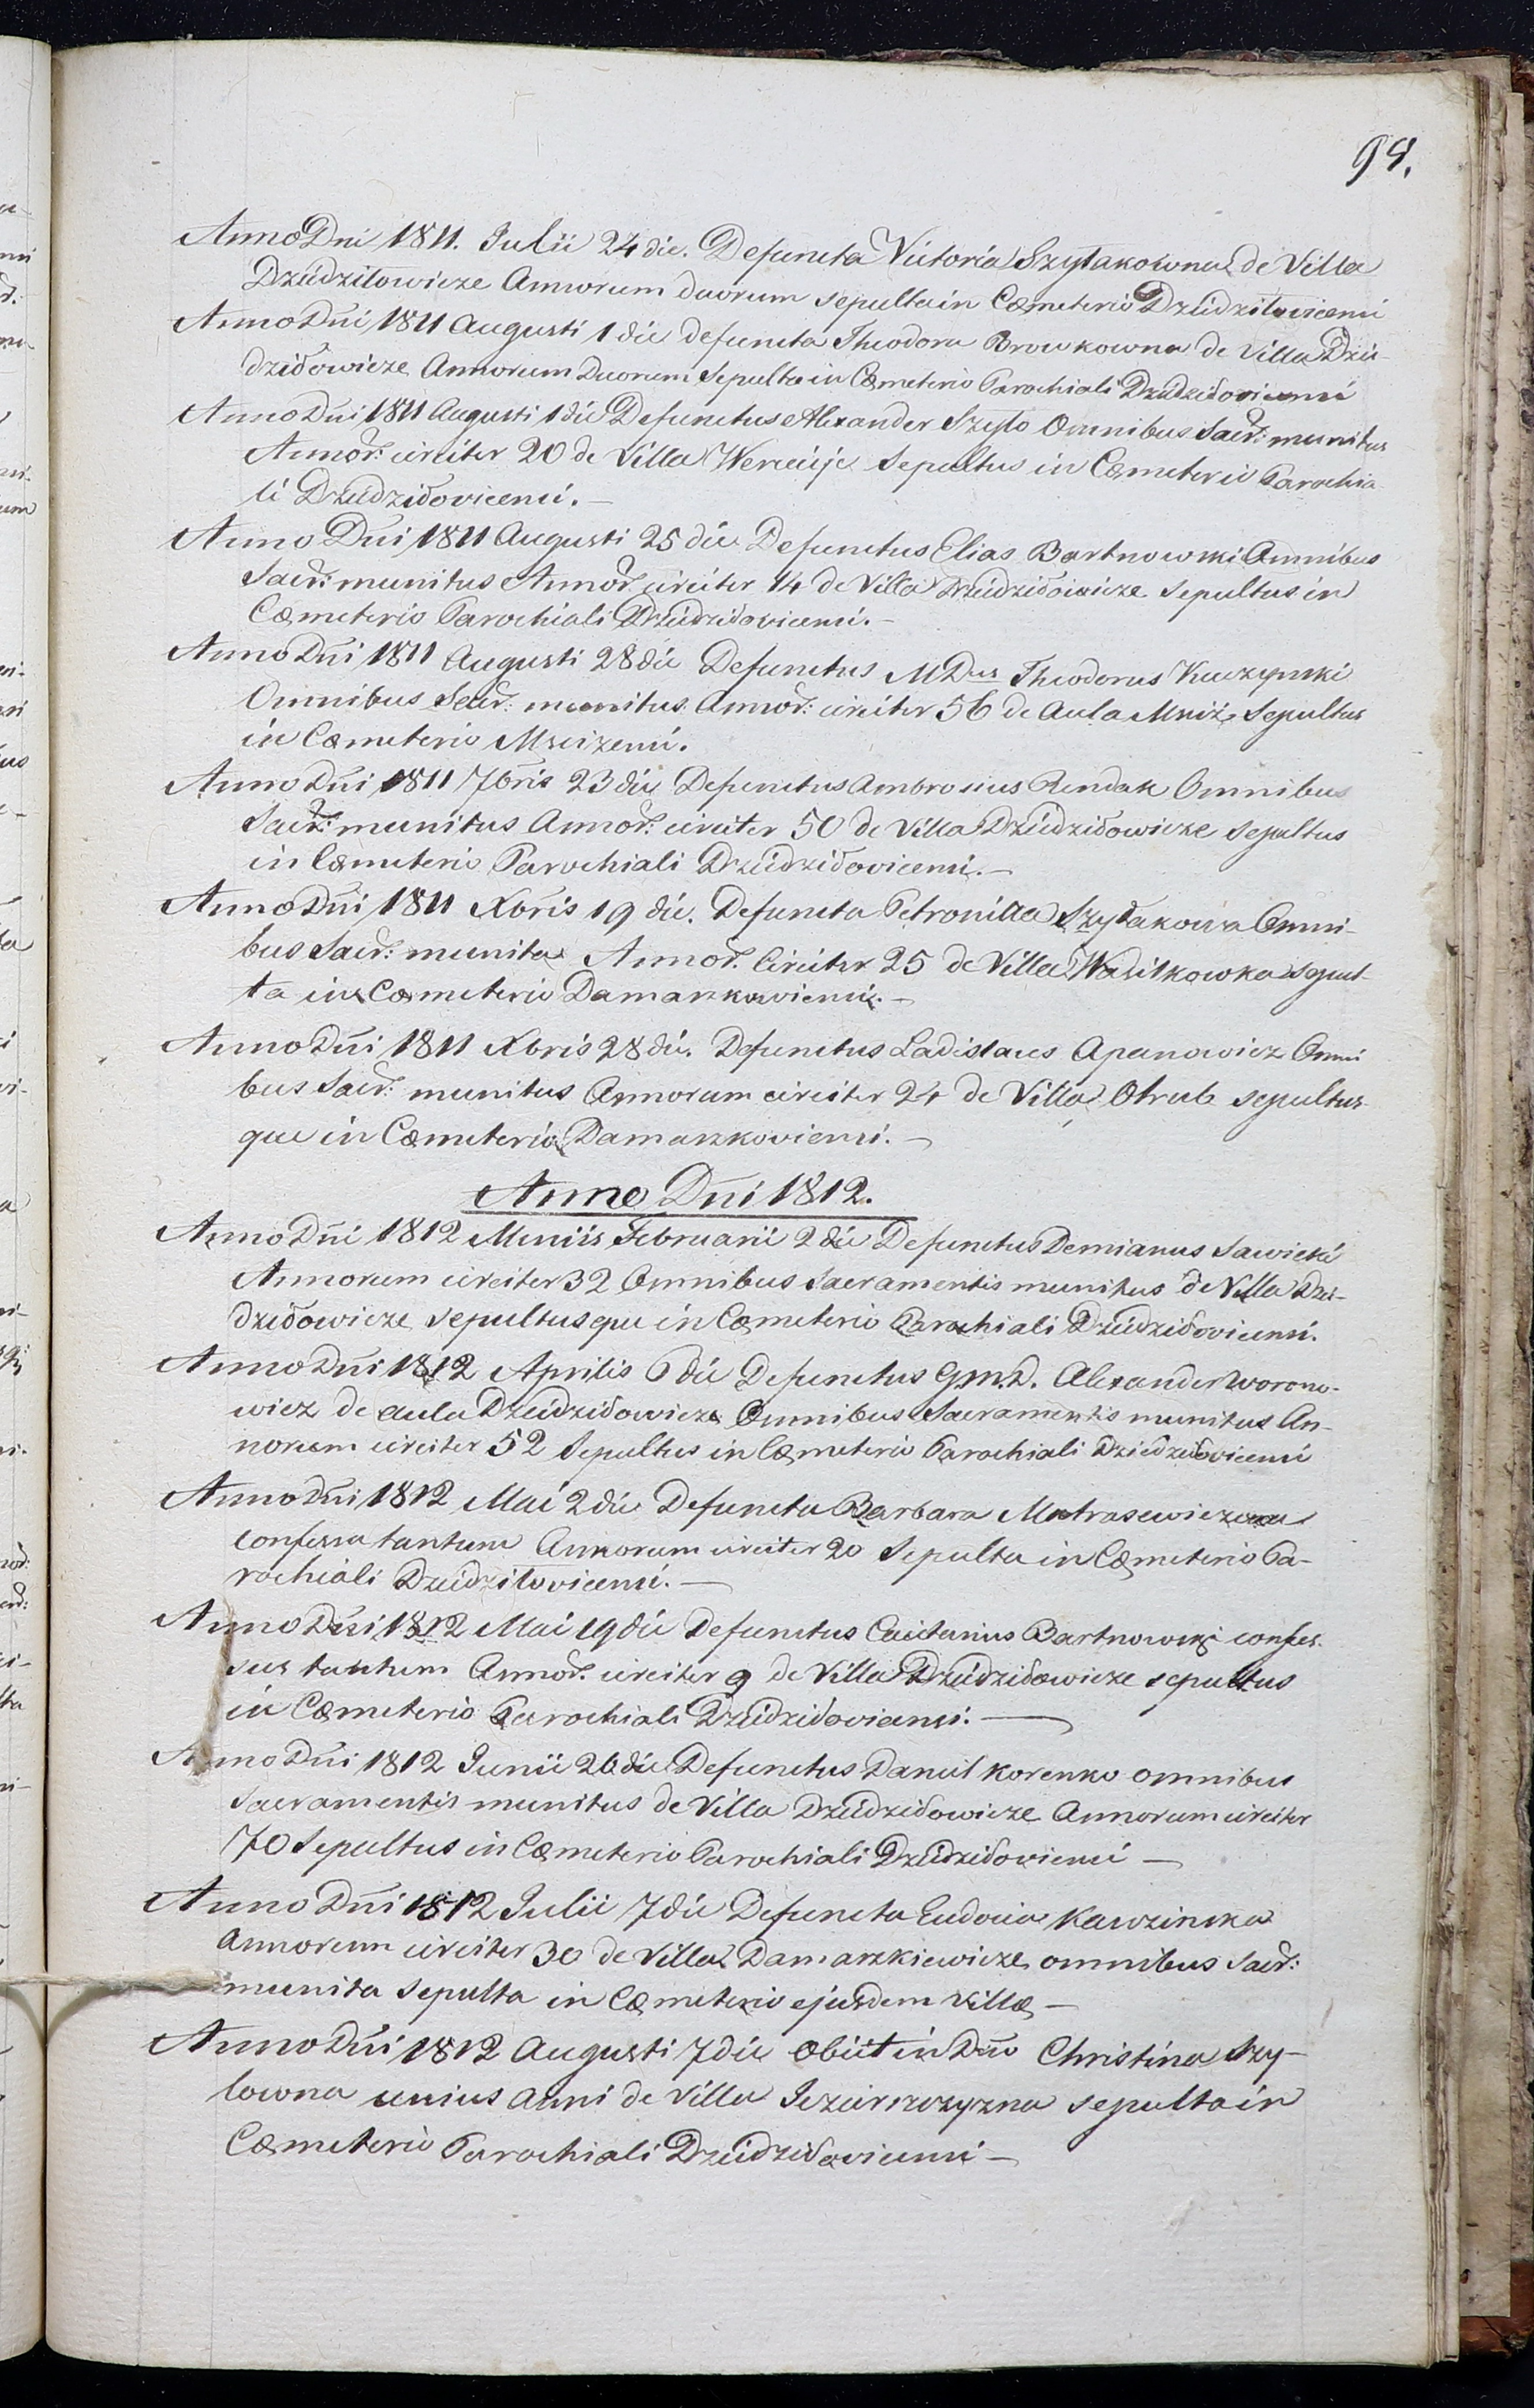 94.
Anno Dni 1811. Julii 24 die. Defuncta Victoria Szyłakowna de Villa
Dziedziłowicze Annorum duorum sepulta in Cæmeterio Dziedziłovicensi
Anno Dni 1811 Augusti 1 die defuncta Theodora Browkowna de Villa Dzie-
dziłowicze Annorum Duorum Sepulta in Cæmeterio Parochiali Dziedziłovicensi
Anno Dni 1811 Augusti 1 die Defunctus Alexander Szyło Omnibus Sacr: munitus
Annor: circiter 20 de Villa Wercieje Sepultus in Cæmeterio Parochia
li Dziedziłovicensi.—
Anno Dni 1811 Augusti 25 die Defunctus Elias Bartnowski Omnibus
Sacr: munitus Annor: circiter 14 de Villa Dziedziłowicze Sepultus in
Cæmeterio Parochiali Dziedziłovicensi.—
Anno Dni 1811 Augusti 28 die Defunctus MDnus Theodorus Kuczynski
Omnibus Sacr: munitus Annor: circiter 56 de Aula Msciż Sepultus
in Cæmeterio Mscizensi.
Anno Dni 1811 7bris 23 die Defunctus Ambrosius Rendak Omnibus
Sacr: munitus Annor: circiter 50 de Villa Dziedziłowicze Sepultus
in Cæmeterio Parochiali Dziedziłovicensi.—
Anno Dni 1811 Xbris 19 die. Defuncta Petronilla Szyłakowa Omni-
bus Sacr: munita Annor. Circiter 25 de Villa Wasilkowka sepul-
ta in Cæmeterio Damaszkoviensi.—
Anno Dni 1811 Xbris 28 die. Defunctus Ladislaus Apanowicz Omni
bus Sacr: munitus Annorum circiter 24 de Villa Otrub sepultus-
que in Cæmeterio Damaszkoviensi.—
Anno Dni 1812.
Anno Dni 1812 Mensis Februarii 2 die Defunctus Demianus Sawicki
Annorum circiter 32 Omnibus Sacramentis munitus de Villa Dzie-
dziłowicze sepultusque in Cæmeterio Parochiali Dziedziłovicensi.
Anno Dni 1812 Aprilis 6 die Defunctus G.M.D. Alexander Worono-
wicz de aula Dziedziłowicze Omnibus Sacramentis munitus An-
norum circiter 52 Sepultus in Cæmeterio Parochiali Dziedziłovicensi
Anno Dni 1812 Mai 2 die Defuncta Barbara Matrasewiczowa
confessa tantum Annorum circiter 20 Sepulta in Cæmeterio Pa-
rochiali Dziedziłovicensi.—
Anno Dni 1812 Mai 19 die Defunctus Caietanus Bartnowski confes-
sus tantum Annor. circiter 9 de Villa Dziedziłowicze sepultus
in Cæmeterio Parochiali Dziedziłovicensi.—
Anno Dni 1812 Junii 26 die Defunctus Daniel Korenko omnibus
Sacramentis munitus de Villa Dziedziłowicze Annorum circiter
70 Sepultus in Cæmeterio Parochiali Dziedziłoviensi—
Anno Dni 1812 Julii 7 die Defuncta Eudocia Kawzinska
Annorum circiter 30 de Villa Damaszkiewicze omnibus Sacr:
munita Sepulta in Cæmeterio ejusdem Villæ—
Anno Dni 1812 Augusti 7 die Obiit in Dno Christina Szy-
łowna unius Anni de Villa sepulta in
Cæmeterio Parochiali Dziedziłovicensi—